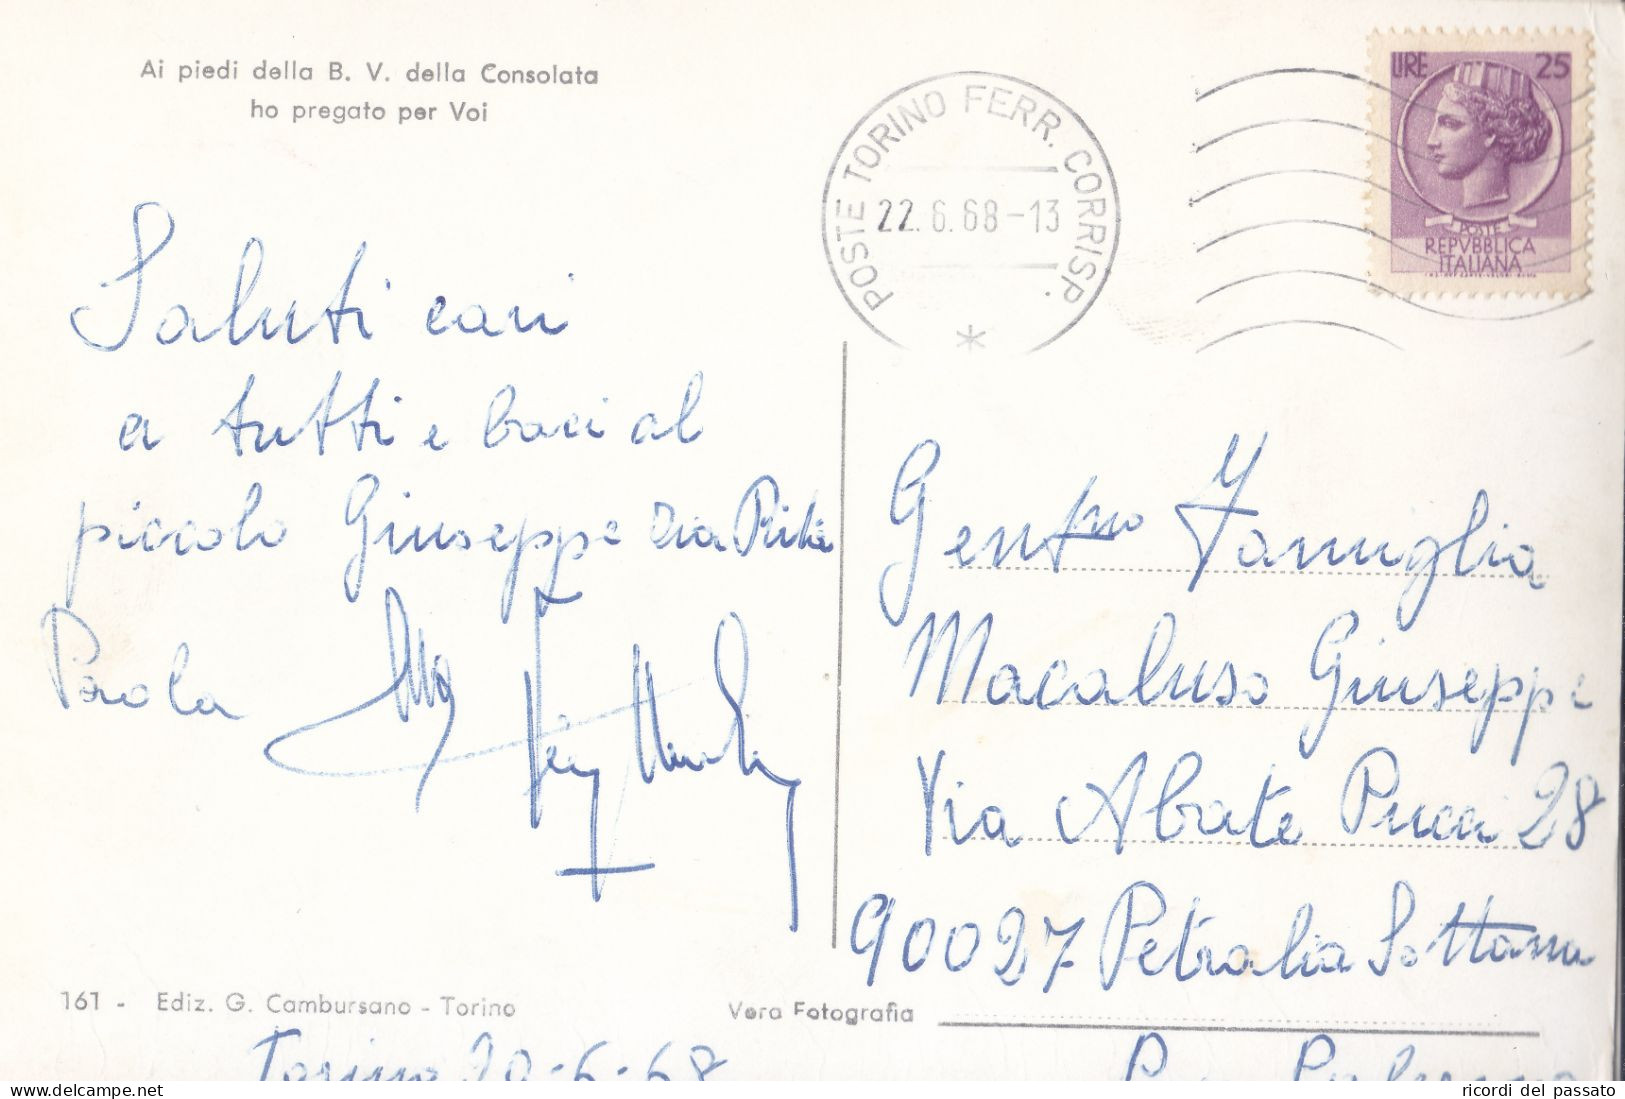 Ai piedi della B. V. della Consolata
ho pregato per Voi
POSTE TORINO FERR. CORRISP.
22.6.68-13
*
LIRE 25
POSTE
REPVBBLICA
ITALIANA
Saluti cari
a tutti e baci al
piccolo Giuseppe Zia Rita
Paola
Gent/mo Famiglia
Macaluso Giuseppe
Via Abate Pucci 28
90027 Petralia Sottana
161 - Ediz. G. Cambursano - Torino
Vera Fotografia
Torino 20-6-68
Palermo
ricordi del passato
delcampe.net